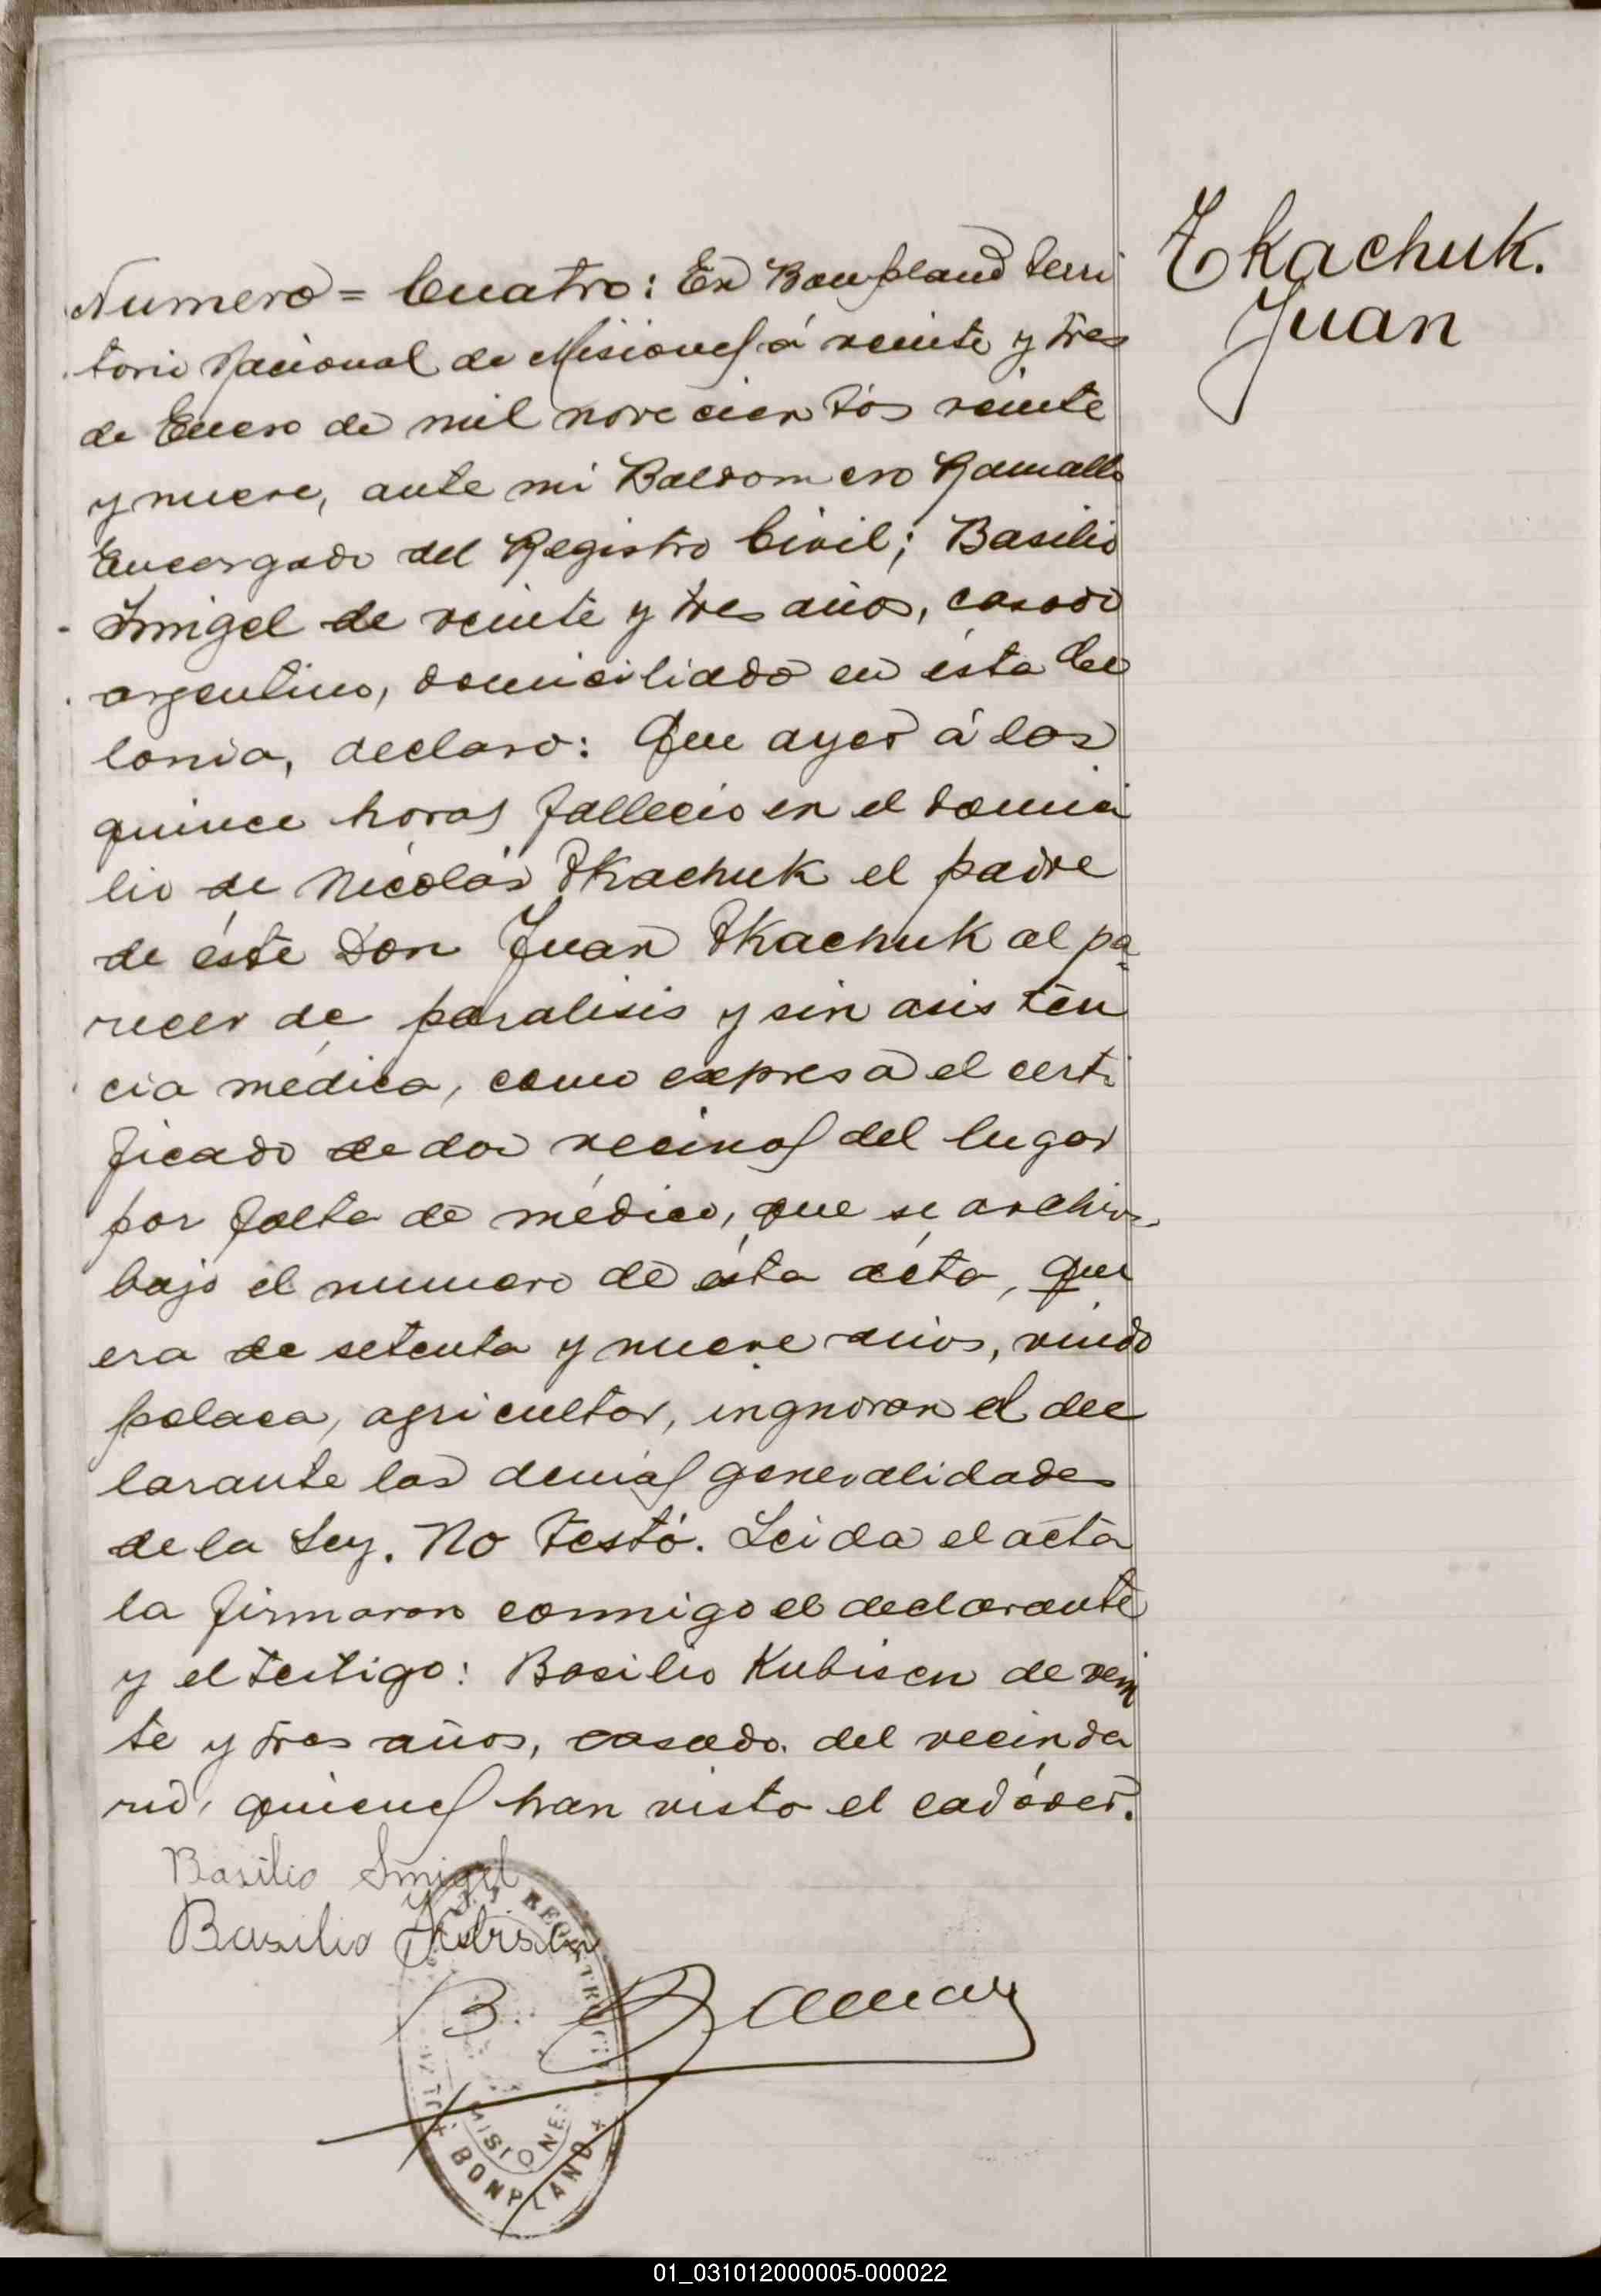 Tkachuk.
Juan
Numero = Cuatro: En Bonpland terri
torio Nacional de Misiones á veinte y tres
de Enero de mil novecientos veinte
y nueve, ante mi Baldomero Ramallo
Encargado del Registro Civil; Basilio
Smigel de veinte y tres años, casado
argentino, domiciliado en ésta Co
lonia, declaro: Que ayer á las
quince horas fallecio en el domici
lio de Nicolás Tkachuk el padre
de éste Don Juan Tkachuk al pa
recer de paralisis y sin asisten
cia médica, como expresa el certi
ficado de dos vecinos del lugar
por falta de médico, que se archiva
bajo el numero de ésta acta, que
era de setenta y nueve años, viudo
polaca, agricultor, ingnoran el dec
larante las demás generalidades
de la Ley. No testó. Leida el acta
la firmaron conmigo el declarante
y el testigo: Basilio Kubiscn de vein
te y tres años, casado. del vecinda
rio, quienes han visto el cadáver.
Basilio Smigel
Basilio
B. Ramall
REGISTRO
MISIONES
BONPLAND
01_031012000005-000022